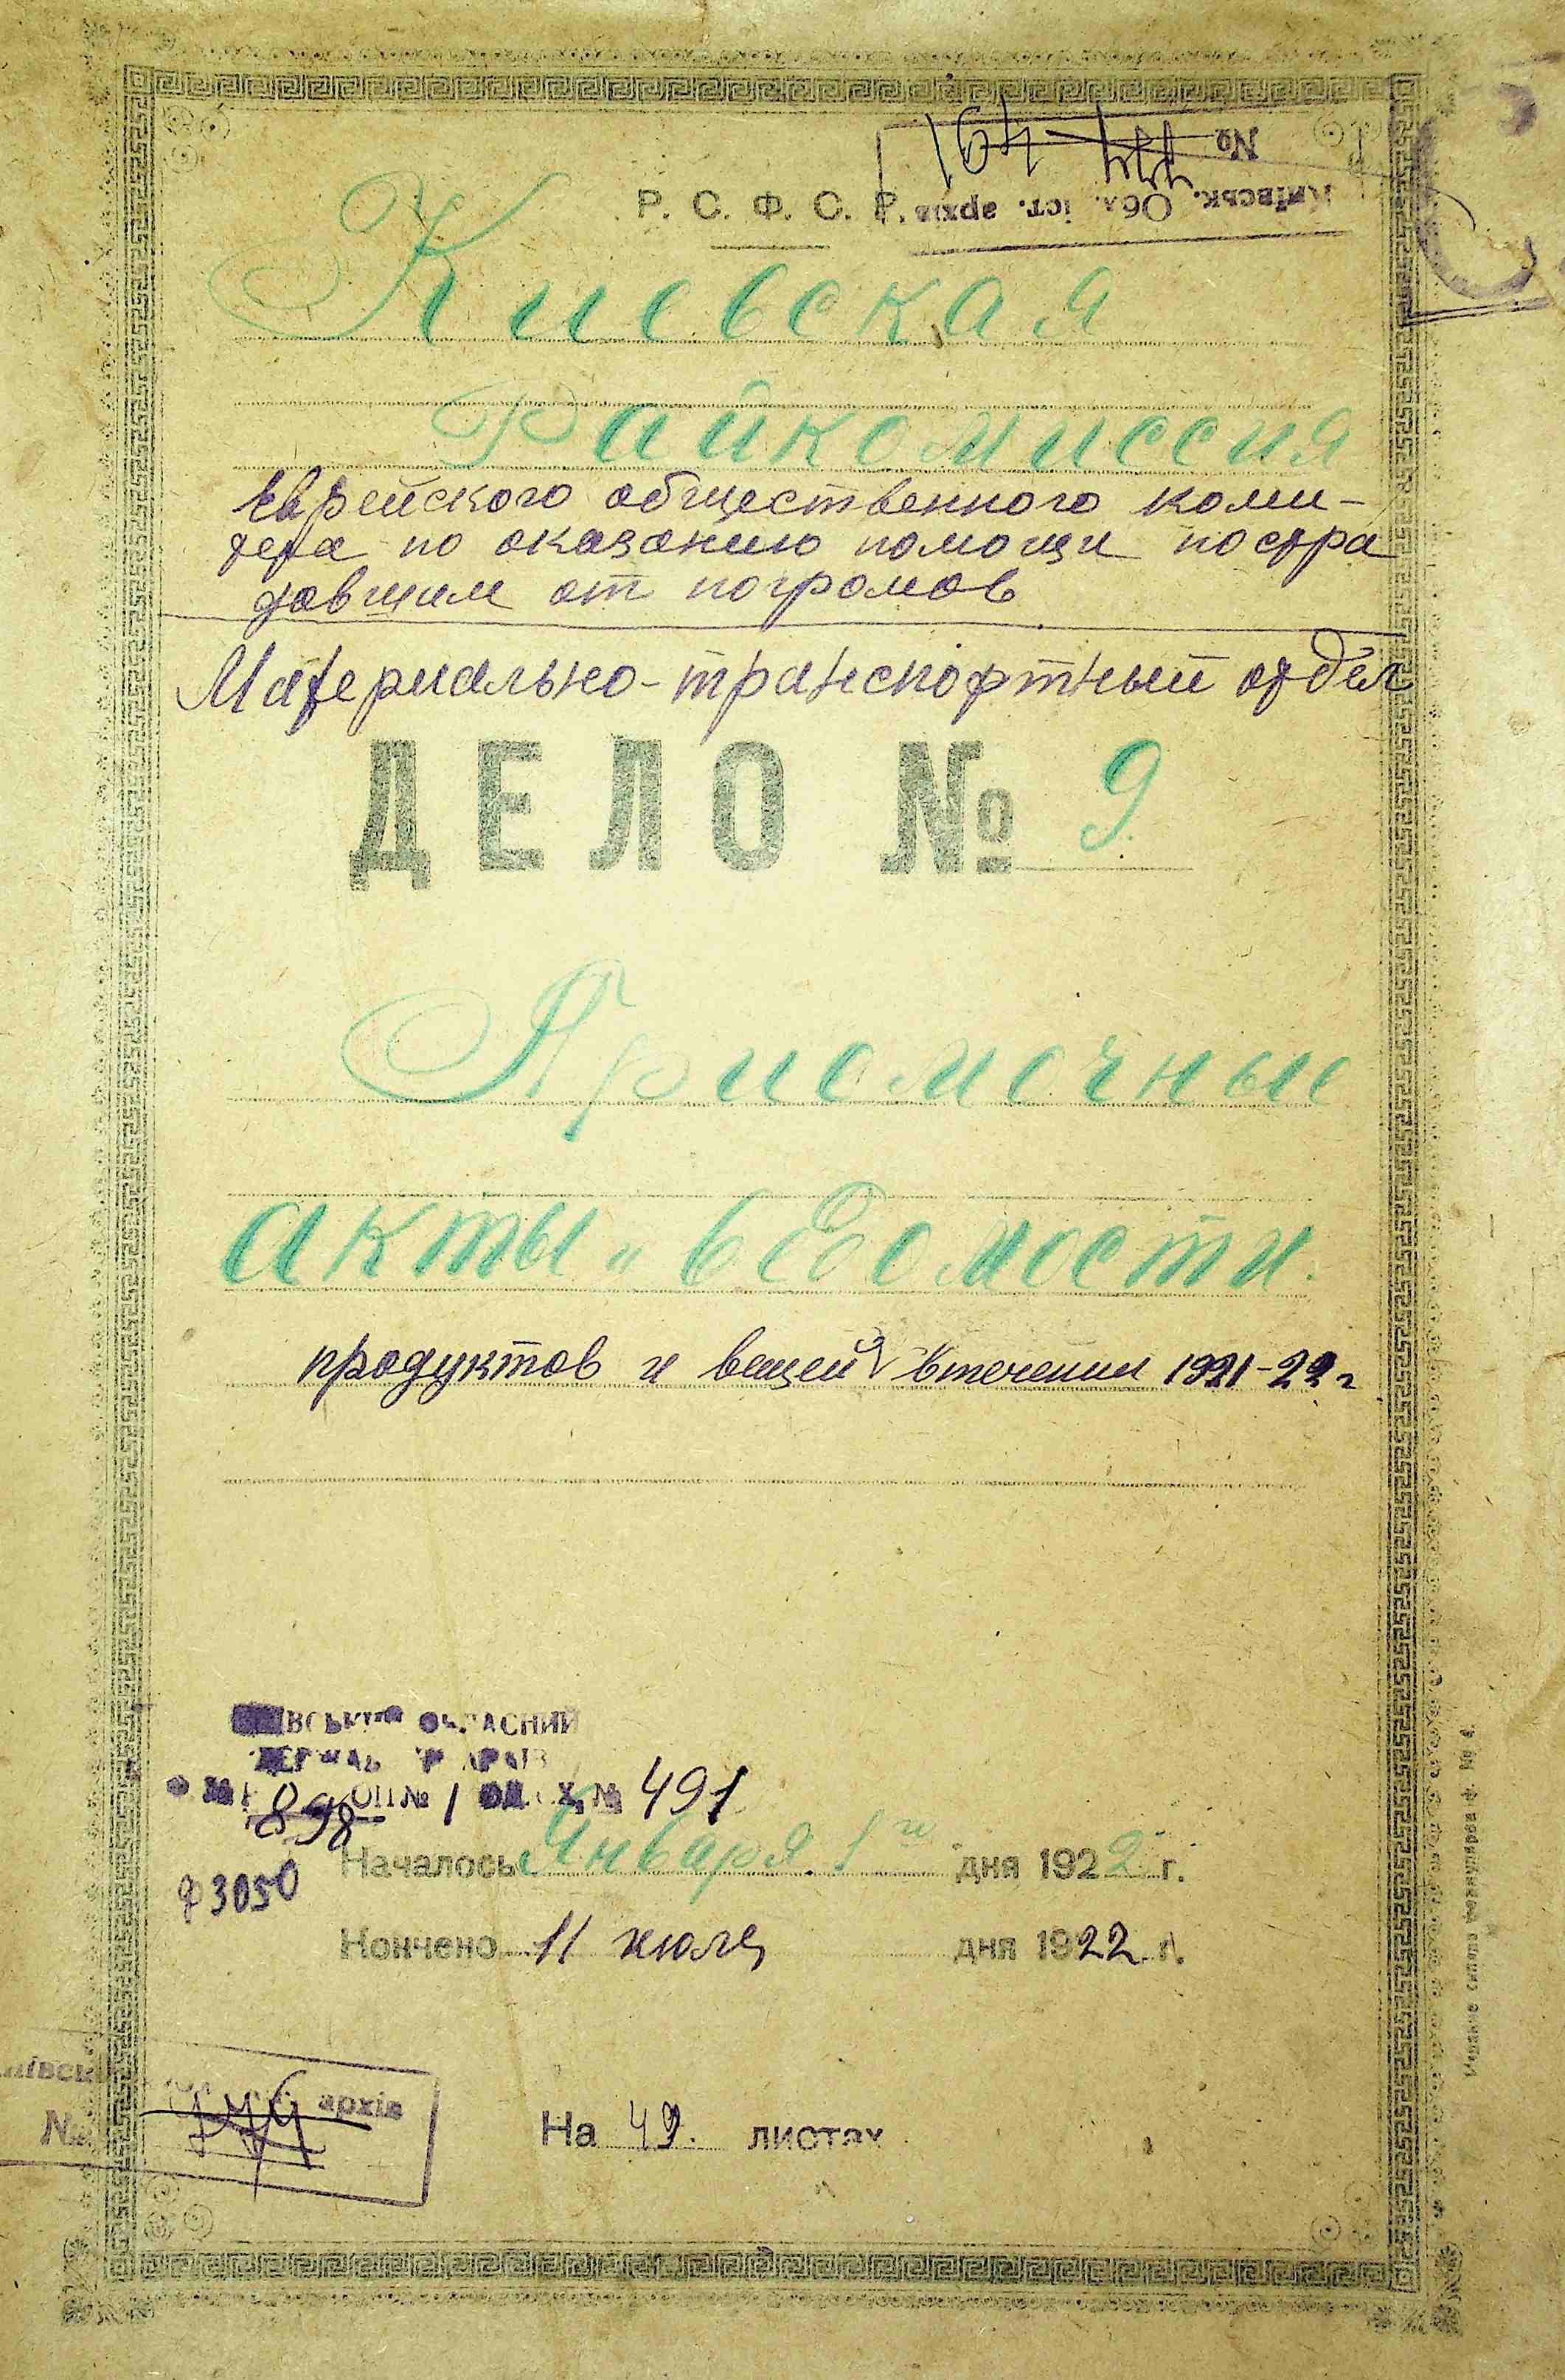 № 164
Київськ. Обл. іст. архів
Р. С. Ф. С. Р.
Киевская
Райкомиссия
Еврейского общественного коми-
тета по оказанию помощи постра
давшим от погромов
Материально-транспортный отдел
ДЕЛО № 9.
Приемочные
акты и ведомости.
продуктов и вещей в течении 1921-22 г
ОБЛАСНИЙ
ОП № 1 ОД. ЗХ. № 491
898
ф 3050
Началось Января 1 го дня 1922 г.
Кончено 11 июля дня 1922 г.
архів
№
На 49. листах